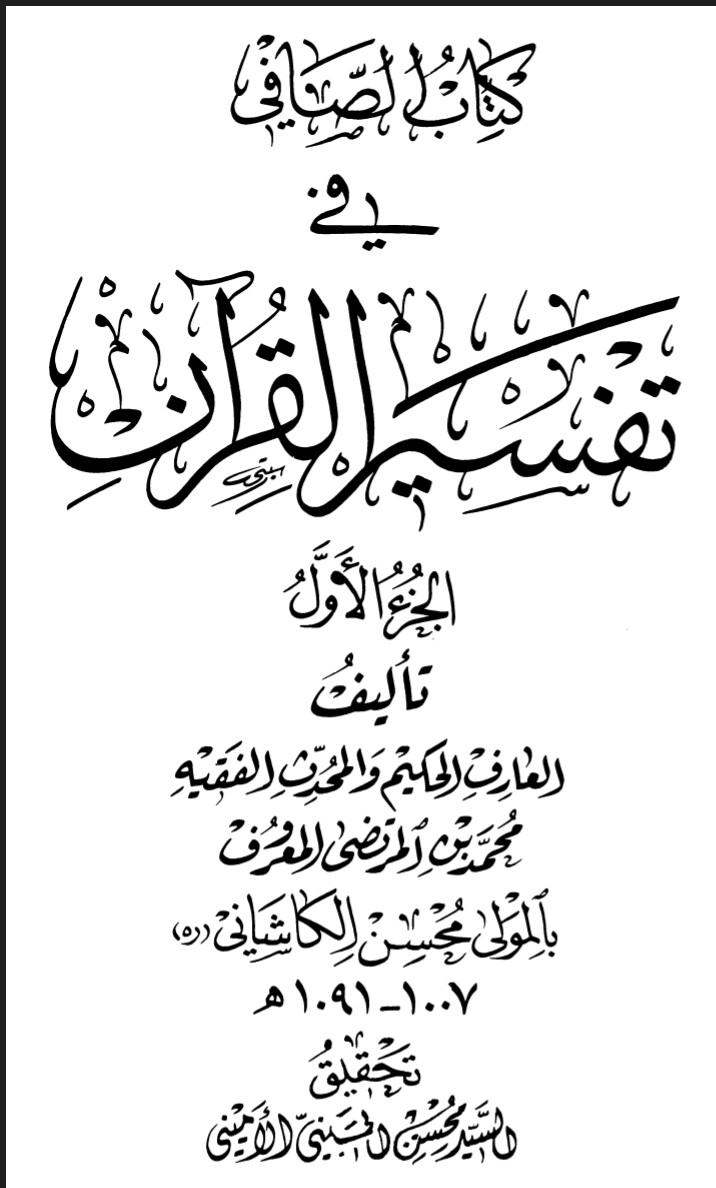 كِتَابُ الصَّافِي
في
تَفْسِيرِ الْقُرْآنِ
الجُزْءُ الأَوَّلُ
تأليفُ
العارِفِ الحَكيمِ وَالمُحَدِّثِ الفَقيهِ
مُحَمَّدِ بْنِ المُرتَضى المَعرُوفْ
بِالمَولى مُحْسِنْ الكَاشَاني «ره»
١٠٠٧ـ١٠٩١ ه
تَحقيقُ
السَّيِّد مُحْسِن الحُسَينيّ الأَميني